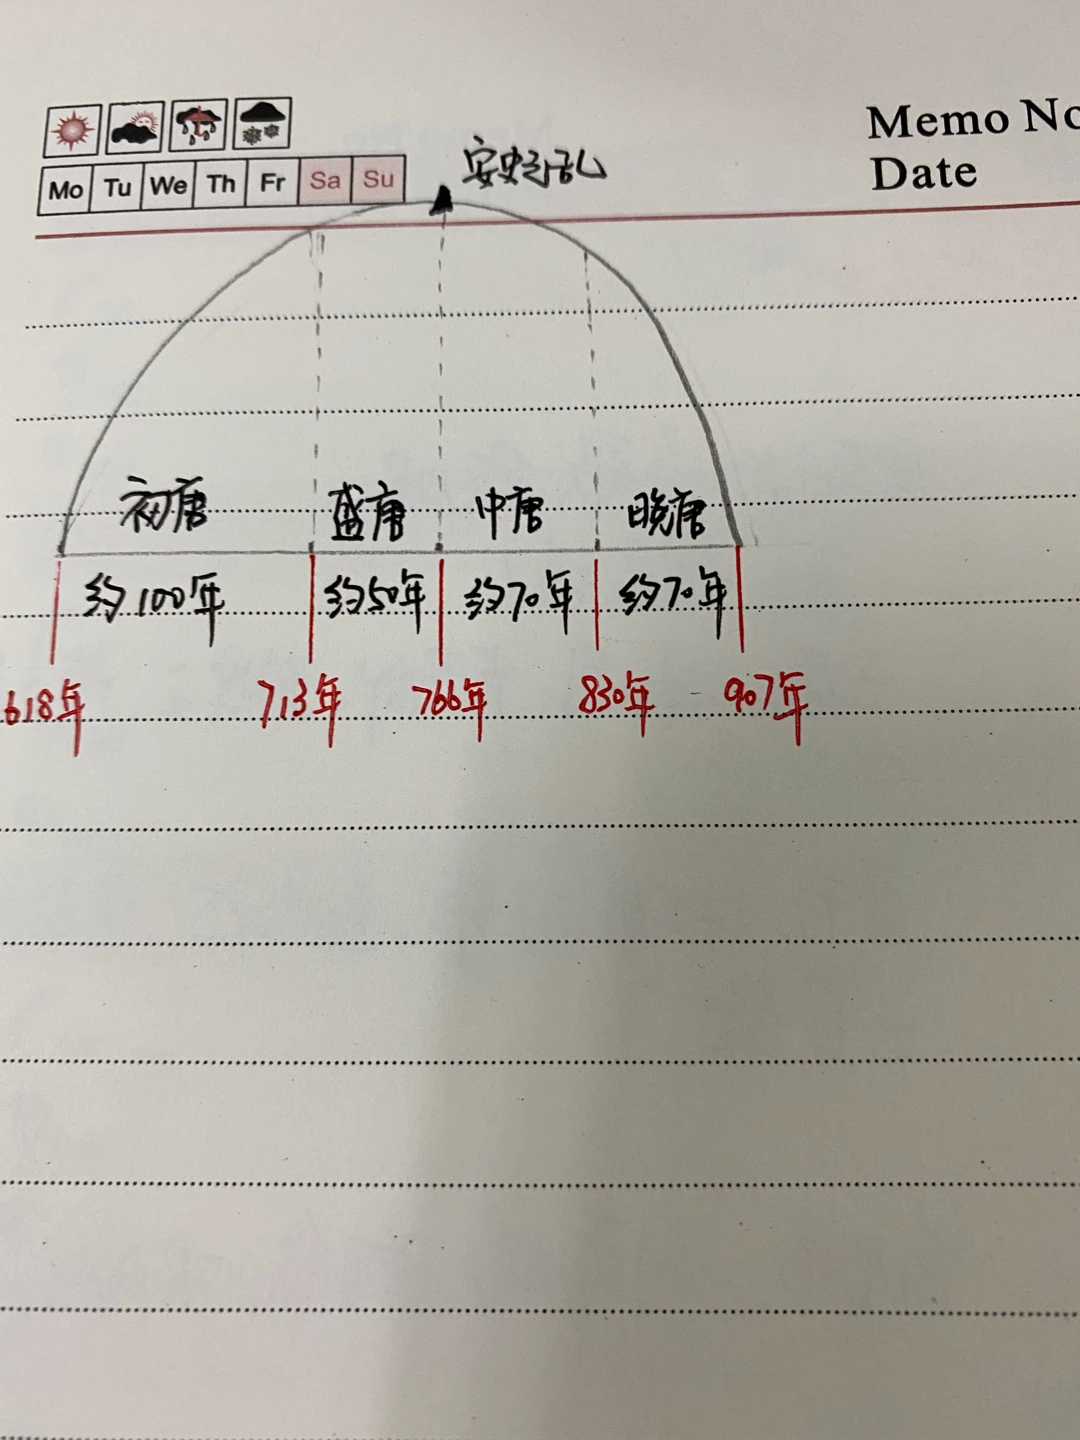 Memo No
Date
Mo Tu We Th Fr Sa Su
安史之乱
初唐 盛唐 中唐 晚唐
约100年 约50年 约70年 约70年
618年 713年 766年 830年 907年